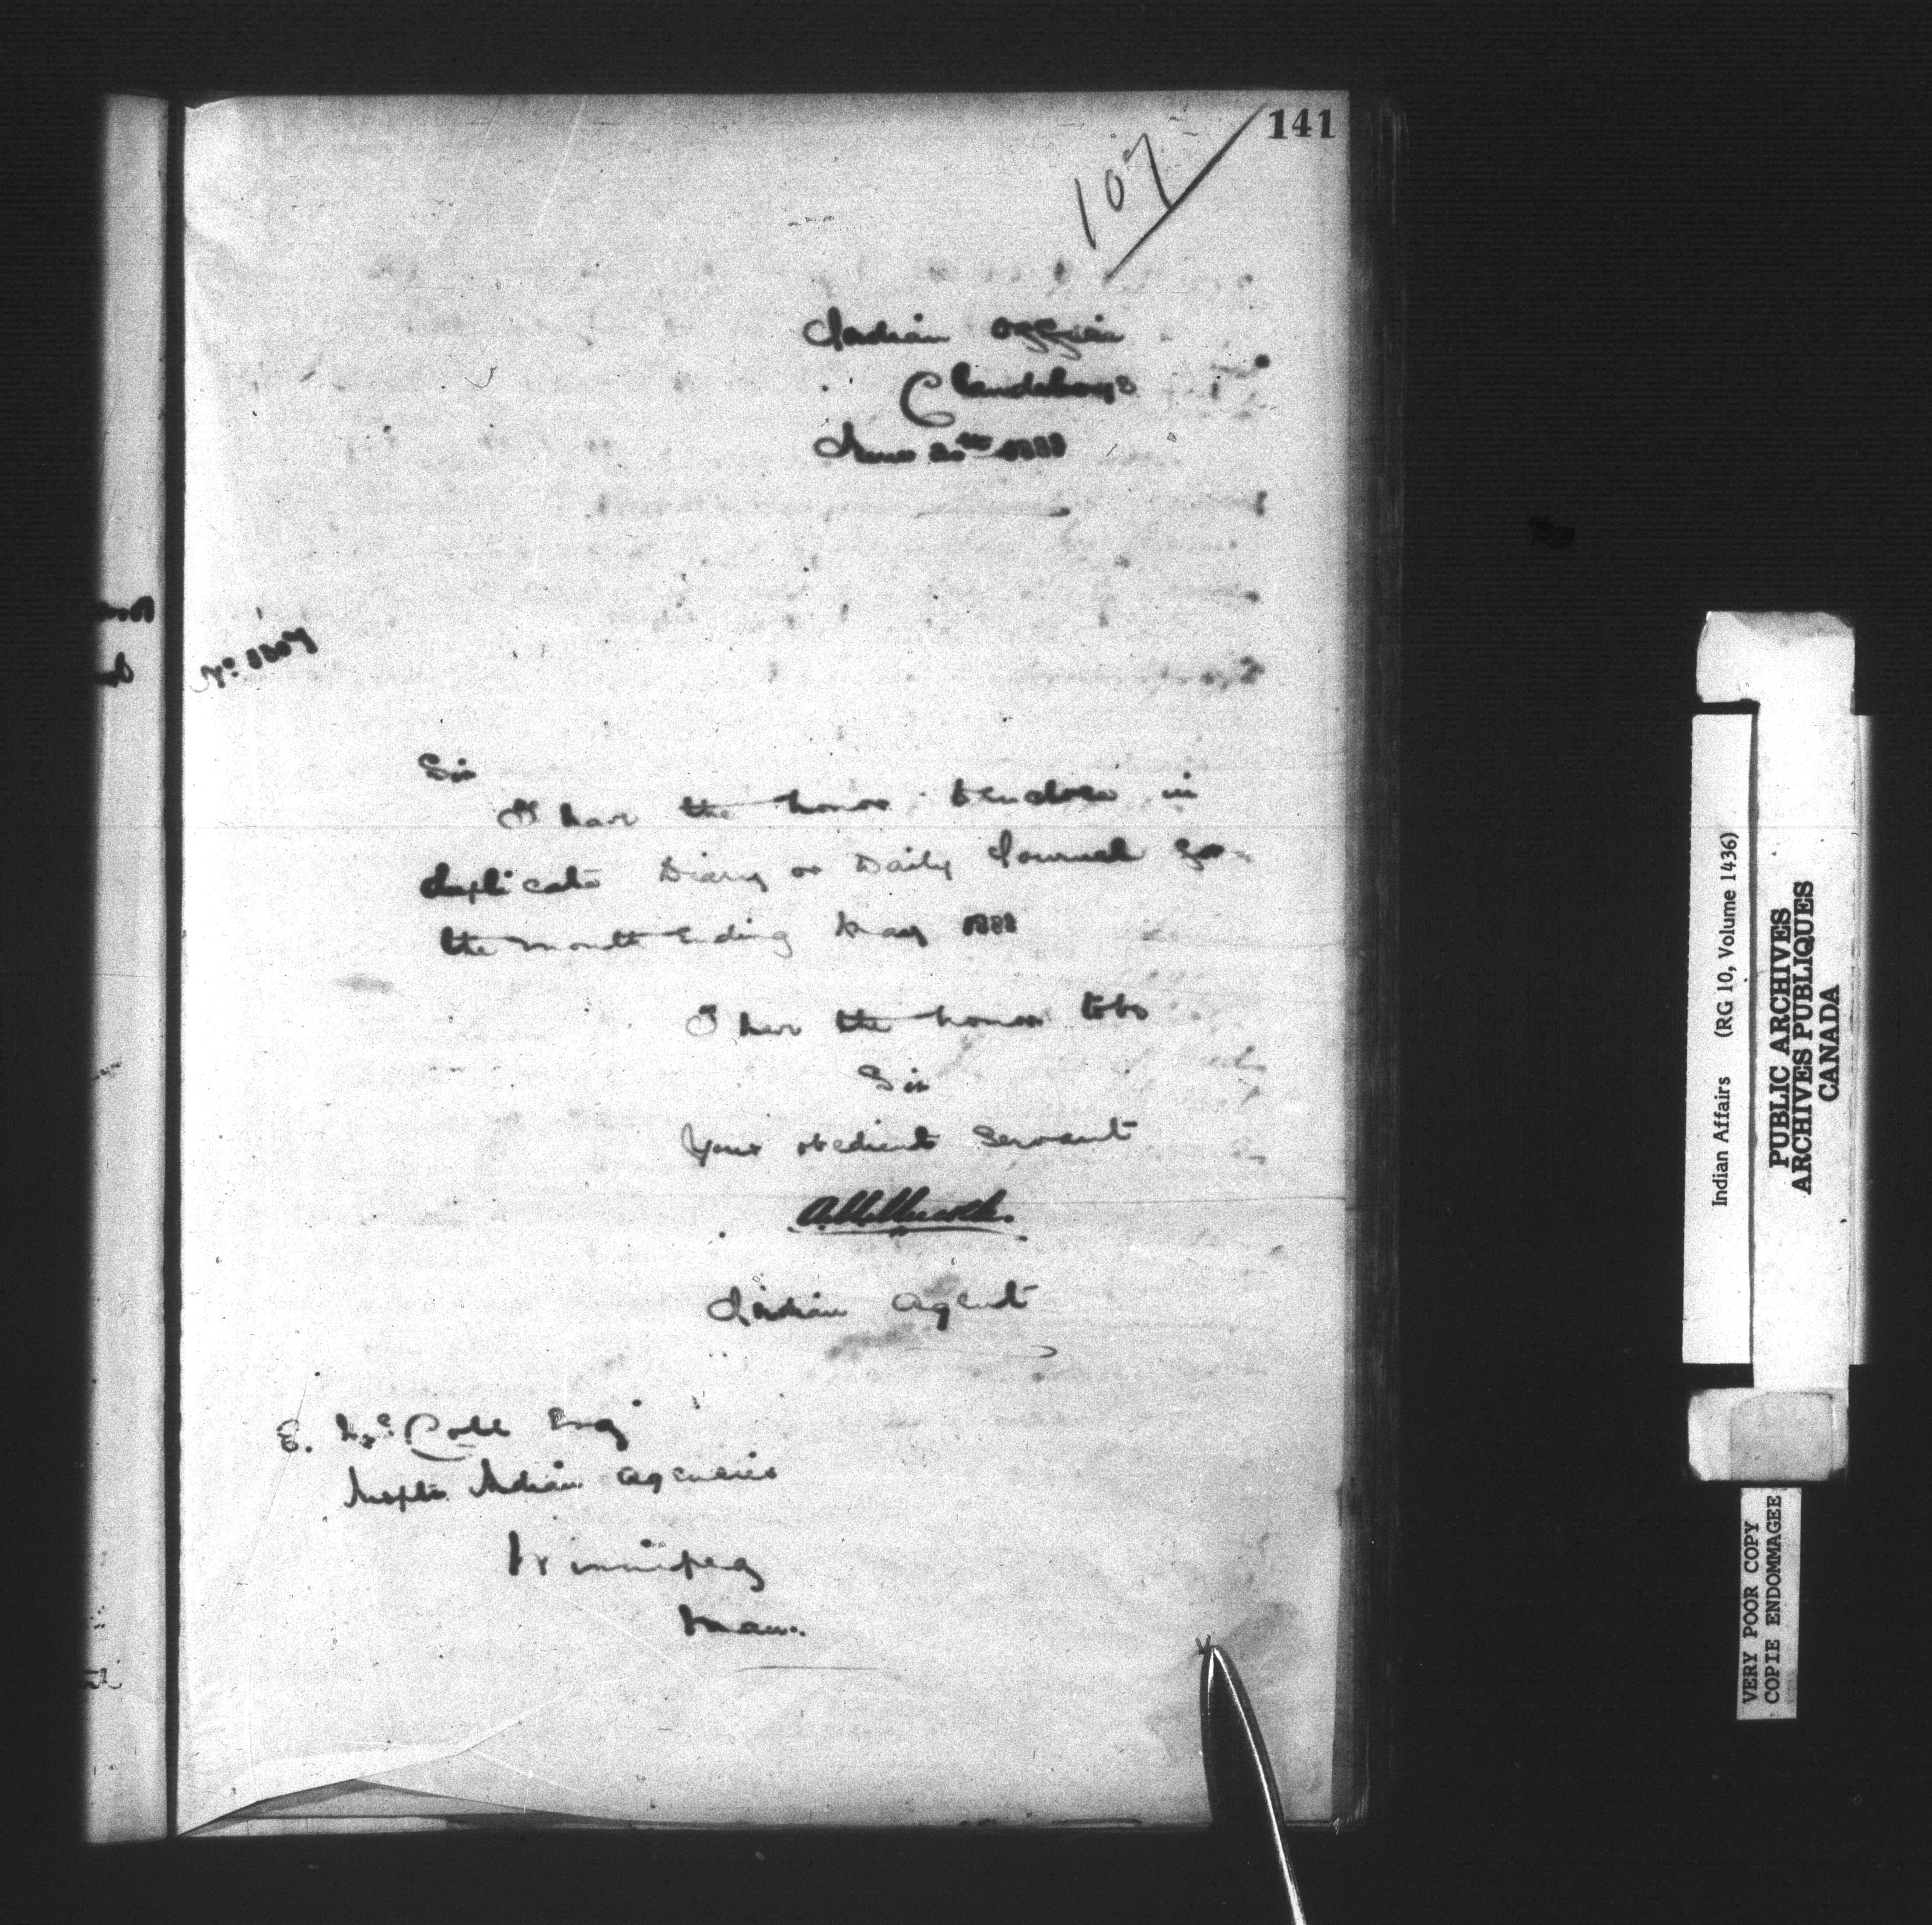 141
107
Indian Office
Clandeboye
June 20th 1888
No 3307
Sir
I have the honor to enclose in
duplicate Diary or Daily Journal for
the month ending May 1888
I have the honor to be
Sir
Your obedient Servant
Indian Agent
E. McColl Esq
Inspt. Indian Agencies
Winnipeg
Man.
Indian Affairs (RG 10, Volume 1436)
PUBLIC ARCHIVES
ARCHIVES PUBLIQUES
CANADA
VERY POOR COPY
COPIE ENDOMMAGEE